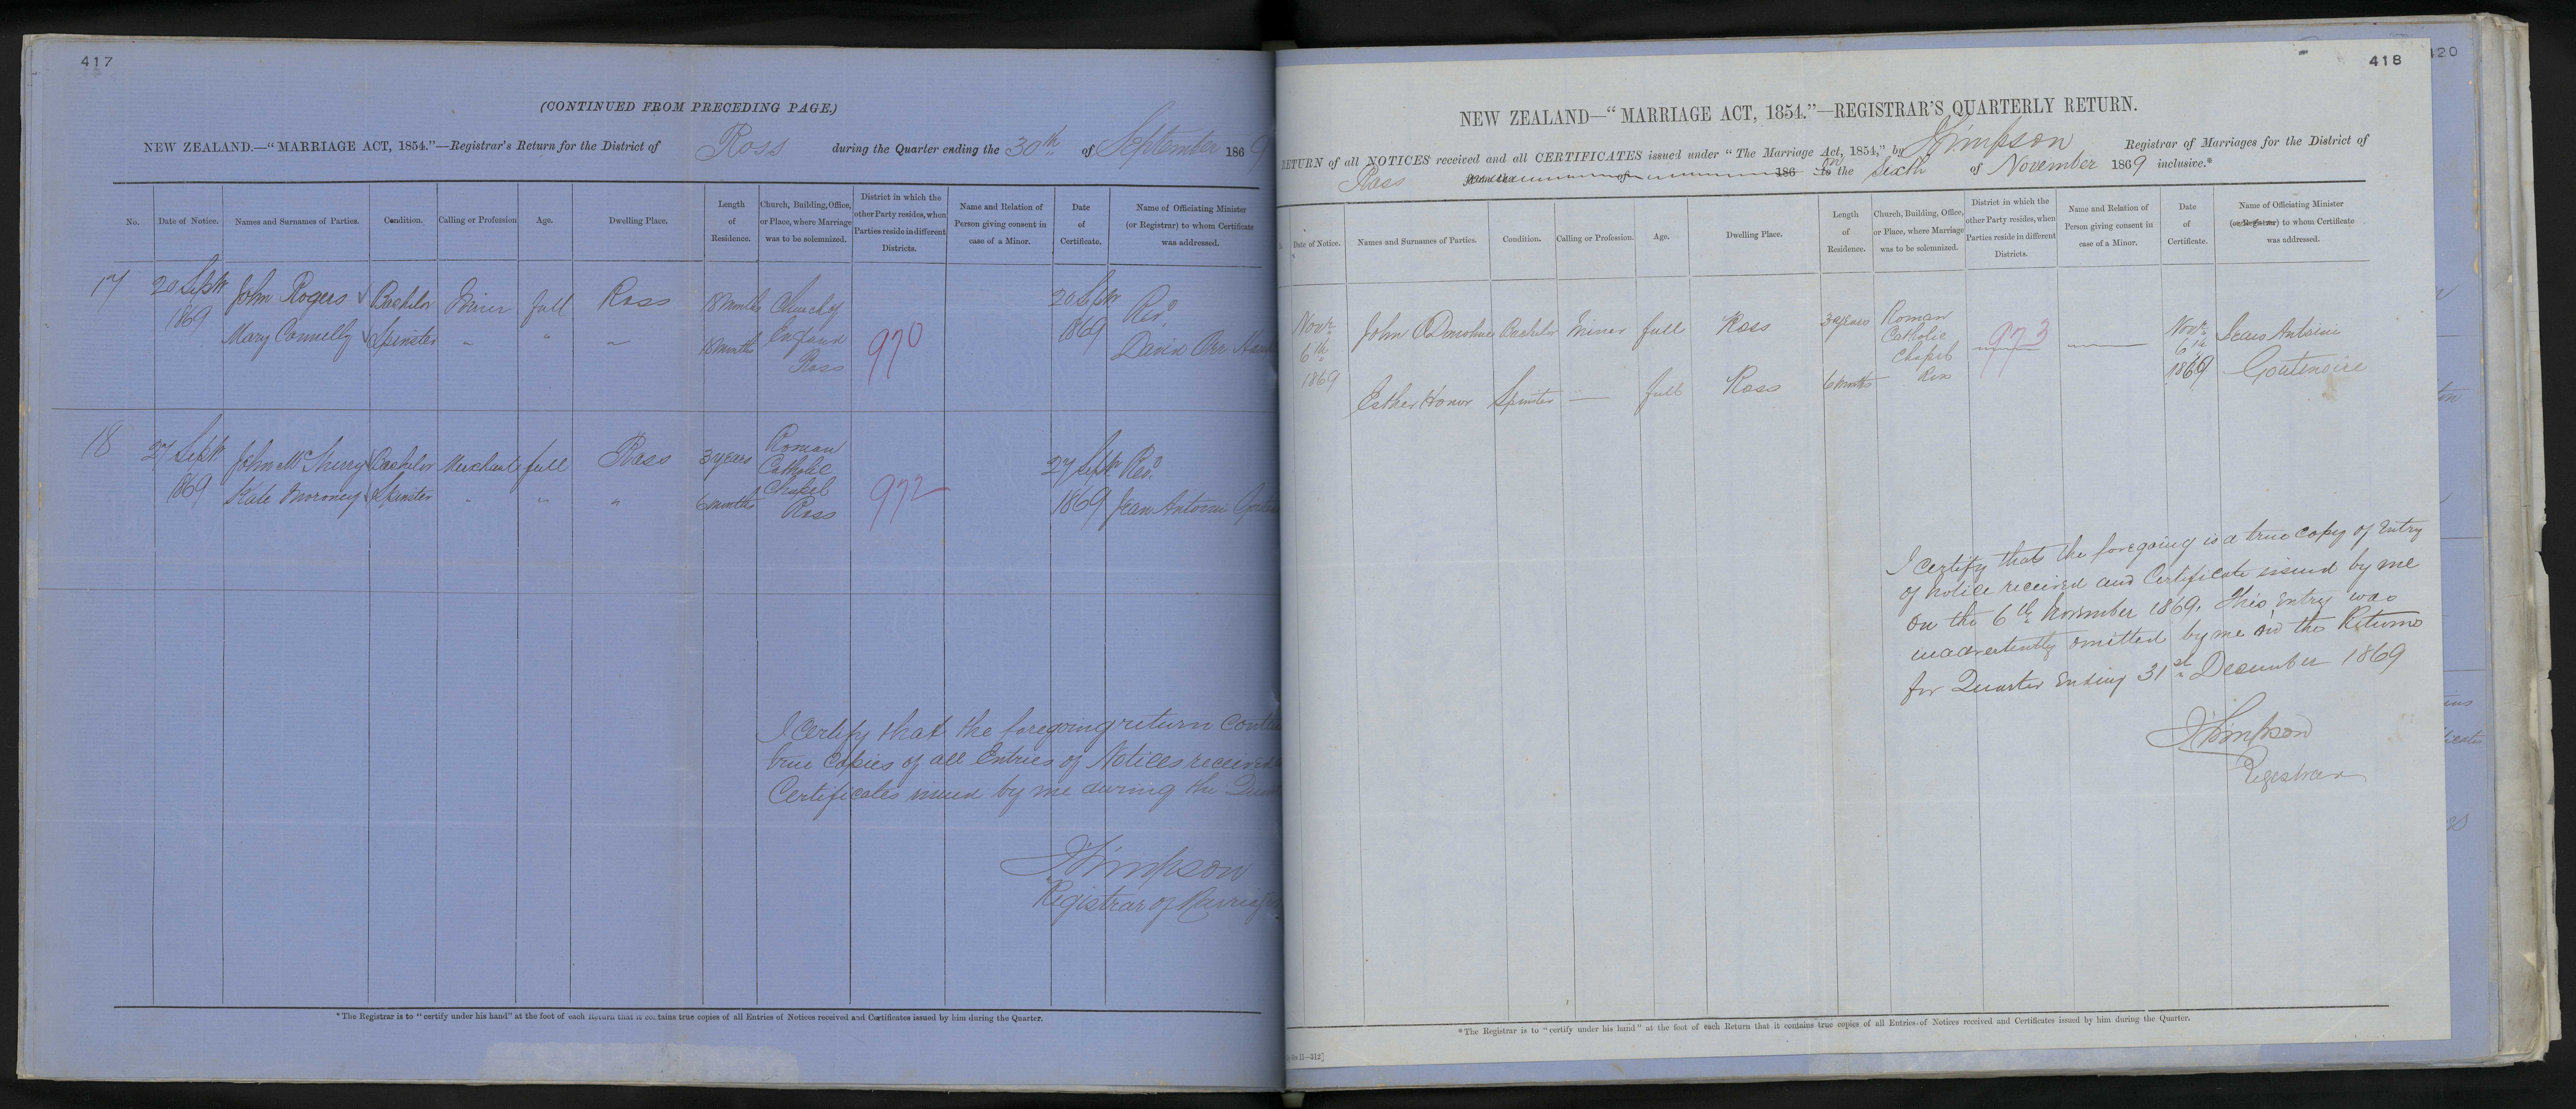 417
(CONTINUED FROM PRECEDING PAGE.)
NEW ZEALAND.—"MARRIAGE ACT, 1854."—Registrar's Return for the District of Ross during the Quarter ending the 30th of September 1869
No. Date of Notice. Names and Surnames of Parties. Condition. Calling or Profession Age. Dwelling Place. Length of Residence. Church, Building, Office, or Place, where Marriage was to be solemnized. District in which the other Party resides, when Parties reside in different Districts. Name and Relation of Person giving consent in case of a Minor. Date of Certificate. Name of Officiating Minister (or Registrar) to whom Certificate was addressed.
17 20 Septr 1869 John Rogers Bachelor Miner full Ross 18 Months Church of England Ross 970 20 Septr 1869 Revd David Orr
Mary Connelly Spinster " " " 18 Months
18 27 Septr 1869 John McSherry Bachelor Merchant full Ross 3 years Roman Catholic Chapel Ross 972 27 Septr 1869 Revd Jean Antoine
Kate Moroney Spinster " " " 6 months
I Certify that the foregoing return
true Copies of all Entries of Notices received
Certificates issued by me during the
J Simpson
Registrar of
*The Registrar is to "certify under his hand" at the foot of each Return that it contains true copies of all Entries of Notices received and Certificates issued by him during the Quarter.
418
420
NEW ZEALAND—"MARRIAGE ACT, 1854."—REGISTRAR'S QUARTERLY RETURN.
RETURN of all NOTICES received and all CERTIFICATES issued under "The Marriage Act, 1854," by J Simpson Registrar of Marriages for the District of
Ross from the of 186 to on the Sixth of November 1869 inclusive.*
Date of Notice. Names and Surnames of Parties. Condition. Calling or Profession. Age. Dwelling Place. Length of Residence. Church, Building, Office, or Place, where Marriage was to be solemnized. District in which the other Party resides, when Parties reside in different Districts. Name and Relation of Person giving consent in case of a Minor. Date of Certificate. Name of Officiating Minister (or Registrar) to whom Certificate was addressed.
Novr 6th 1869 John O'Donohue Bachelor Miner full Ross 3 years Roman Catholic Chapel Ross 973 Novr 6th 1869 Jean Antoine Goutenoire
Esther Honor Spinster — full Ross 6 months
I Certify that the foregoing is a true copy of Entry
of Notice received and Certificate issued by me
on the 6th November 1869. This Entry was
inadvertently omitted by me in the Returns
for Quarter Ending 31st December 1869
J Simpson
Registrar
*The Registrar is to "certify under his hand" at the foot of each Return that it contains true copies of all Entries of Notices received and Certificates issued by him during the Quarter.